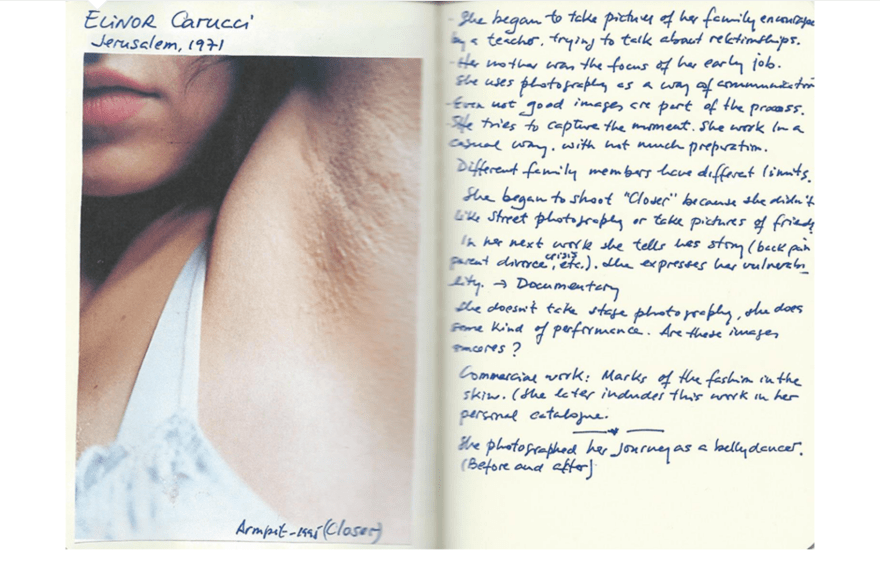 ELINOR Carucci
Jerusalem, 1971
Armpit - 1995 (Closer)
- She began to take pictures of her family encourage
by a teacher. trying to talk about relationships.
- Her mother was the focus of her early job.
She uses photography as a way of communication
- Even not good images are part of the process.
She tries to capture the moment. She work in a
casual way. with not much prepration.
Different family members have differet limits.
She began to shoot "Closer" because she didn't
like street photography or take pictures of friends
In her next work she tells has story (back pain
parent divorce, crisis, etc.). She expresses her vulnerabi_
lity. → Documentary
She doesn't take stage photography, she does
some kind of performance. Are these images
sinceres?
Commercial work: Marks of the fashion in the
skin. (She later includes this work in her
personal catalogue.
She photographed her journey as a bellydancer.
(Before and after)